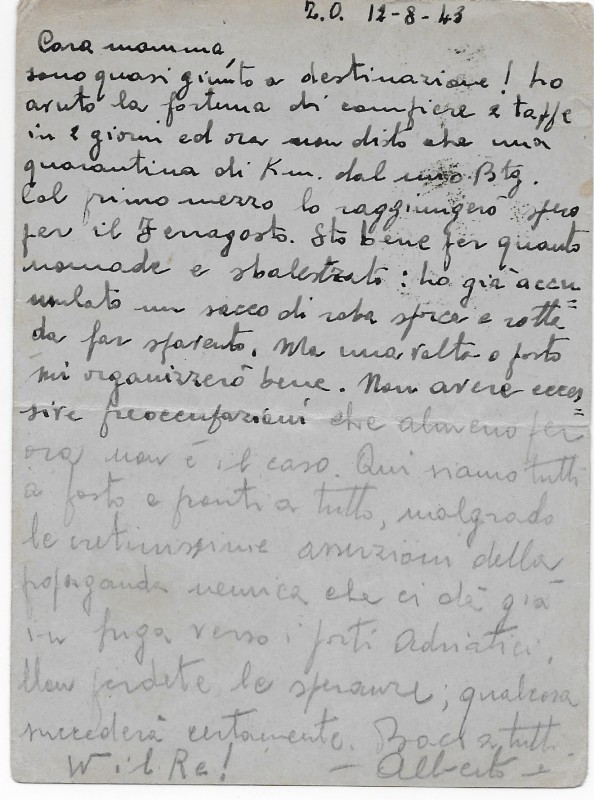 Z.O. 12-8-43
Cara mamma,
sono quasi giunto a destinazione! ho
avuto la fortuna di compiere 2 tappe
in 2 giorni ed ora non disto che una
quarantina di Km. dal mio Btg.
Col primo mezzo lo raggiungerò spero
per il Ferragosto. Sto bene per quanto
nomade e sbalestrato: ho già accu=
mulato un sacco di roba sporca e rotta
da far spavento. Ma una volta a posto
mi organizzerò bene. Non avere ecces=
sive preoccupazioni che almeno per
ora non è il caso. Qui siamo tutti
a posto e pronti a tutto, malgrado
le cretinissime asserzioni della
propaganda nemica che ci dà già
in fuga verso i porti Adriatici.
Non perdete le speranze; qualcosa
succederà certamente. Baci a tutti
W il Re! – Alberto –